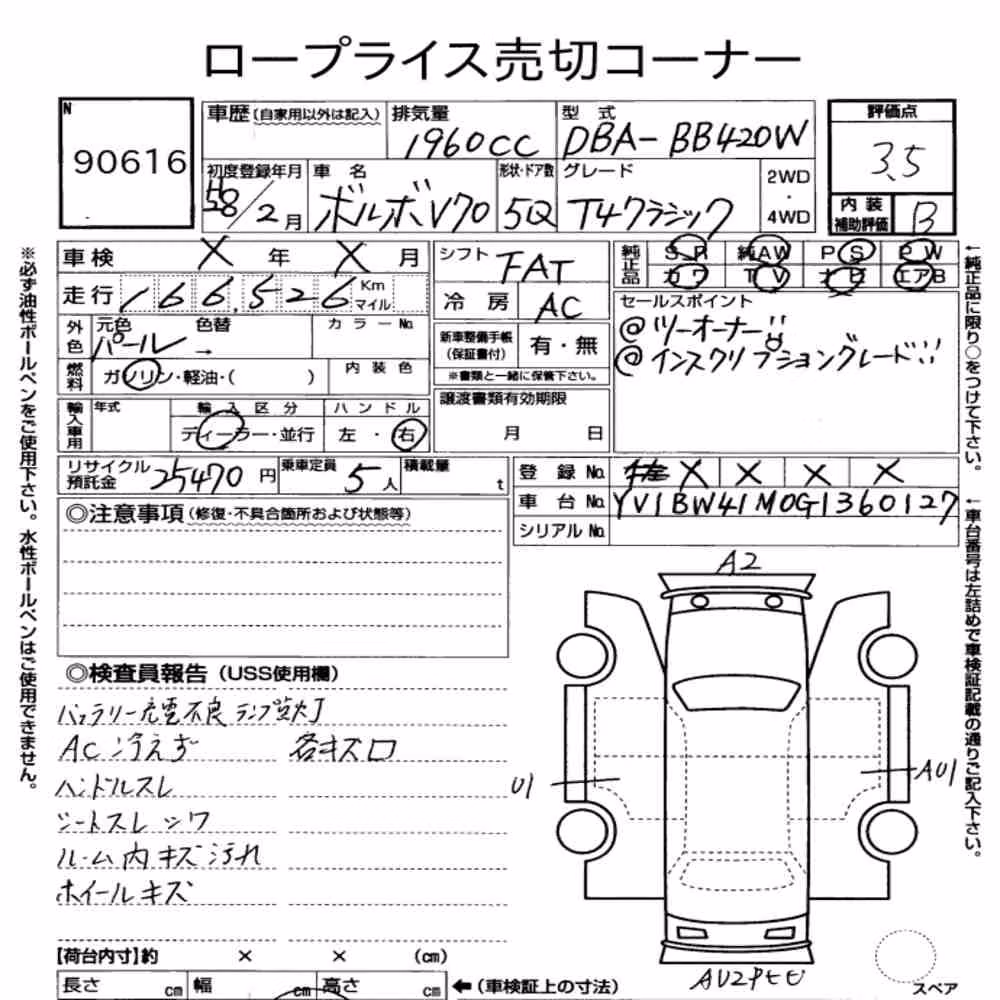 ロープライス売切コーナー
N
90616
車歴(自家用以外は記入)
排気量
1960CC
型式
DBA-BB420W
評価点
3.5
初度登録年月
28/2月
車名
ボルボV70
形状・ドア数
5Q
グレード
T4クラシック
2WD
・
4WD
内装
補助評価
B
車検 X 年 X 月
走行 166,526 Km
マイル
シフト FAT
冷房 AC
純正品
S R 純AW P S P W
カワ T V ナビ エアB
外色
元色 色替
パール →
カラーNo.
燃料
ガソリン・軽油・( )
内装色
新車整備手帳
(保証書付)
有・無
※書類と一緒に保管下さい。
セールスポイント
@ツーオーナー!!
@インスクリプショングレード!!
輸入車用
年式
輸入区分
ディーラー・並行
ハンドル
左・右
譲渡書類有効期限
月 日
リサイクル
預託金
25470円
乗車定員
5人
積載量
t
登録No. X X X X
車台No. YV1BW41M0G1360127
シリアルNo.
◎注意事項(修復・不具合箇所および状態等)
◎検査員報告(USS使用欄)
バッテリー充電不良ランプ点灯
AC冷えず 各キズロ
ハンドルスレ
シートスレ シワ
ルーム内キズ汚れ
ホイールキズ
A2
U1
AU1
AU2PEE
スペア
【荷台内寸】約 × × (cm)
長さ cm 幅 cm 高さ cm
←(車検証上の寸法)
※必ず油性ボールペンをご使用下さい。水性ボールペンはご使用できません。
←純正品に限り○をつけて下さい。
←車台番号は左詰めで車検証記載の通りご記入下さい。